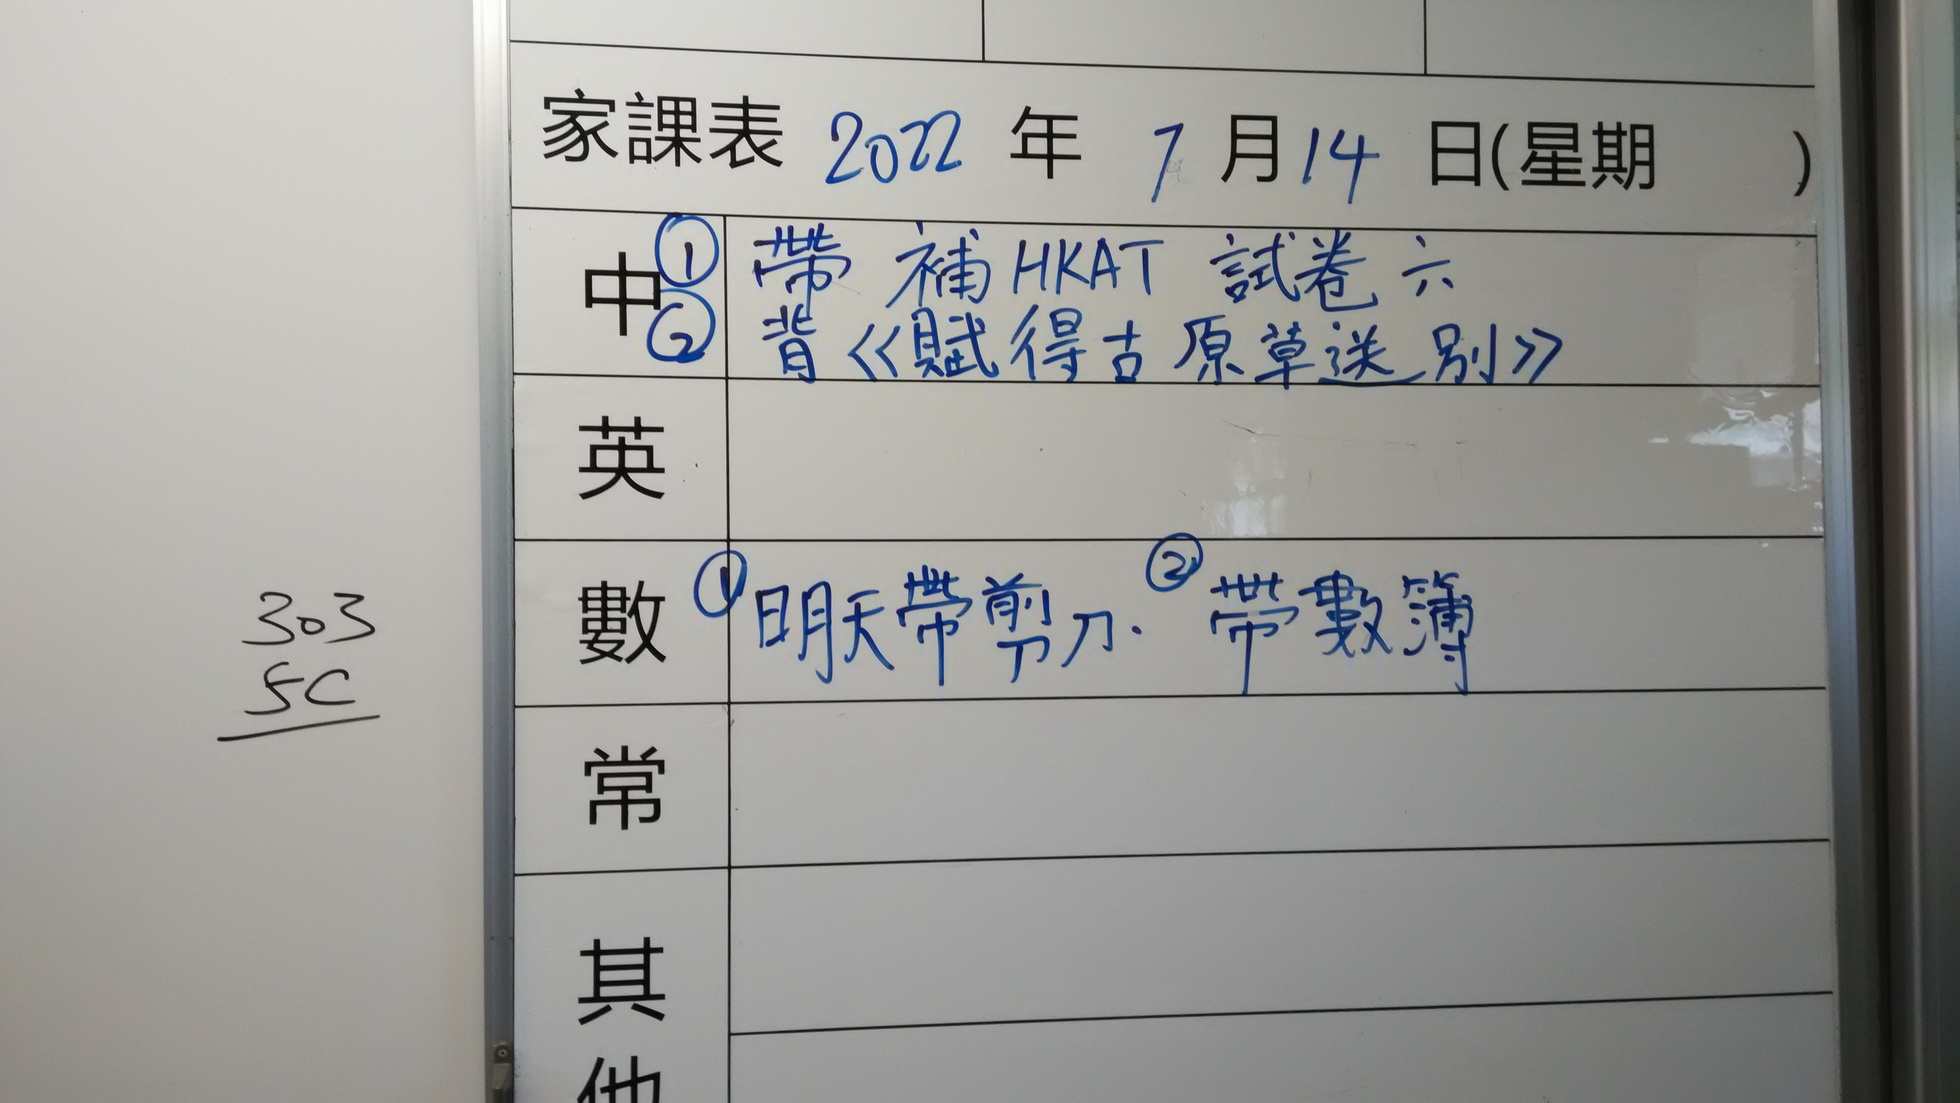 家課表 2022 年 7 月 14 日(星期 )
中 ① 帶 補 HKAT 試卷六
② 背《賦得古原草送別》
英
數 ① 明天帶剪刀. ② 帶數簿
常
其他
303
5C